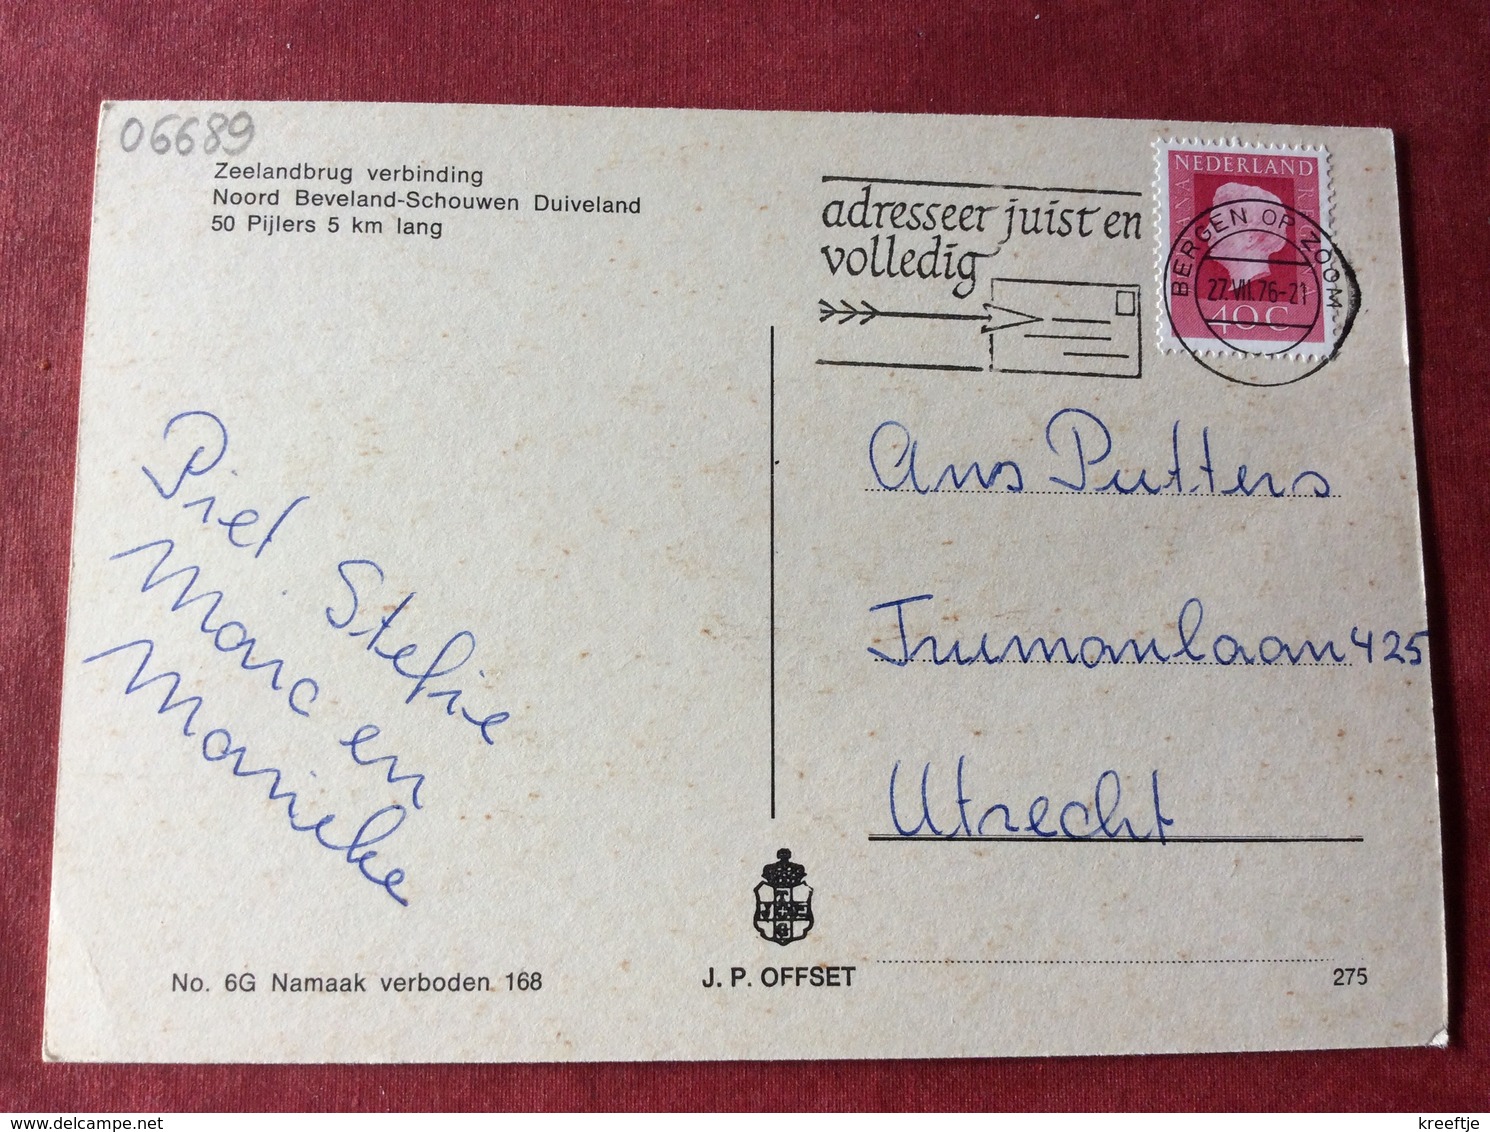 06689
Zeelandbrug verbinding
Noord Beveland-Schouwen Duiveland
50 Pijlers 5 km lang
adresseer juist en
volledig
NEDERLAND
JULIANA REGINA
40C
BERGEN OP ZOOM
27.VII.76-21
Piet Stefie
Marc en
Marieke
Ans Putters
Trumanlaan 425
Utrecht
No. 6G Namaak verboden 168
J. P. OFFSET
275
kreeftje